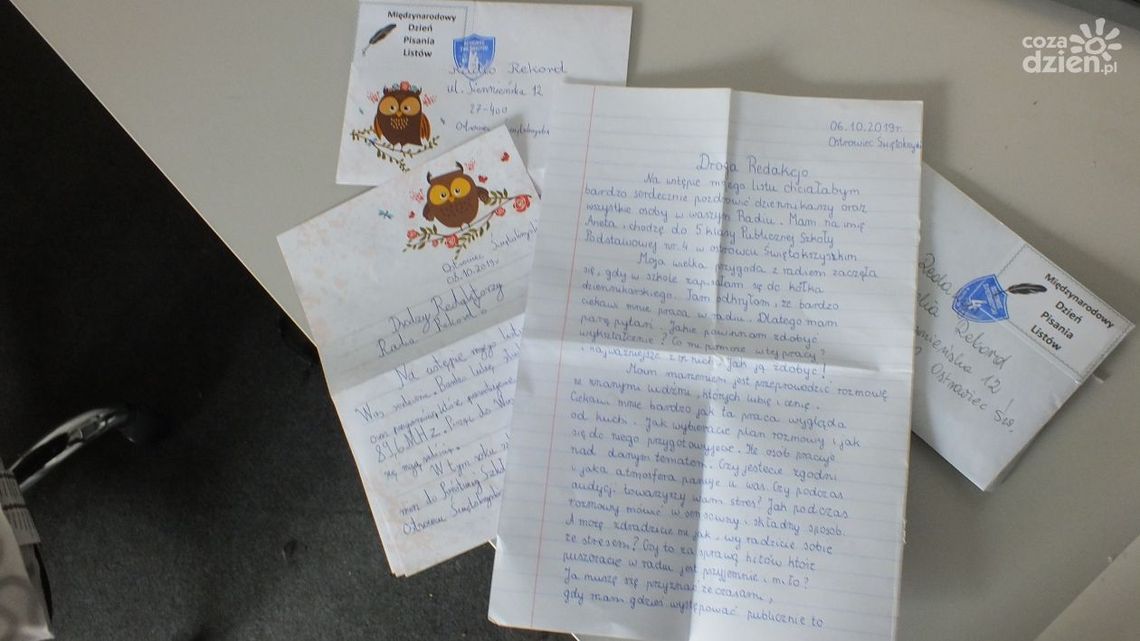 Międzynarodowy
Dzień
Pisania
Listów
Radio Rekord
ul. Sienkieńska 12
27-400
Ostrowiec
coza
dzien.pl
06.10.2019r.
Ostrowiec Świętokrzyski
Droga Redakcjo
Na wstępie mojego listu chciałabym
bardzo serdecznie pozdrowić dziennikarzy oraz
wszystkie osoby w waszym Radiu. Mam na imię
Aneta, chodzę do 5 klasy Publicznej Szkoły
Podstawowej nr. 4 w ostrowcu Świętokrzyszkim
Moja wielka przygoda z radiem zaczęła
się, gdy w szkole zapisałam się do kółka
dziennikarskiego. Tam odkryłam, że bardzo
ciekawi mnie praca w radiu. Dlatego mam
parę pytań. Jakie powinnam zdobyć
wykształcenie? Co mi pomoże w tej pracy?
i najważniejsze z nich - Jak ją zdobyć!
Moim marzeniem jest przeprowadzić rozmowę
ze znanymi ludźmi, których lubię i cenię.
Ciekawi mnie bardzo jak ta praca wygląda
od kuch. Jak wybieracie plan rozmowy i jak
się do niego przygotowyjecie. Ile osób pracuje
nad danym tematem. Czy jesteście zgodni
i jaka atmosfera panuje u was. Czy podczas
audycji towarzyszy wam stres? Jak podczas
rozmowy mówić w sensowny i składny sposób.
A może zdradzicie mi jak, wy radzicie sobie
ze stresem? Czy to za sprawą hitów które
puszczacie w radiu jest przyjemnie i miło?
Ja muszę się przyznać że czasami,
gdy mam gdzieś występować publicznie to
Ostrowiec Świętokrzyski
08.10.2019r
Drodzy Redaktorzy
Radia Rekord!
Na wstępie mojego listu
Was serdecznie. Bardzo lubię
oraz
89,6 MHz. Piszę do Was
się
W tym roku
nr 4
Ostrowcu Świętokrzyskim
Międzynarodowy
Dzień
Pisania
Listów
Radia Rekord
12
Ostrowiec Św.